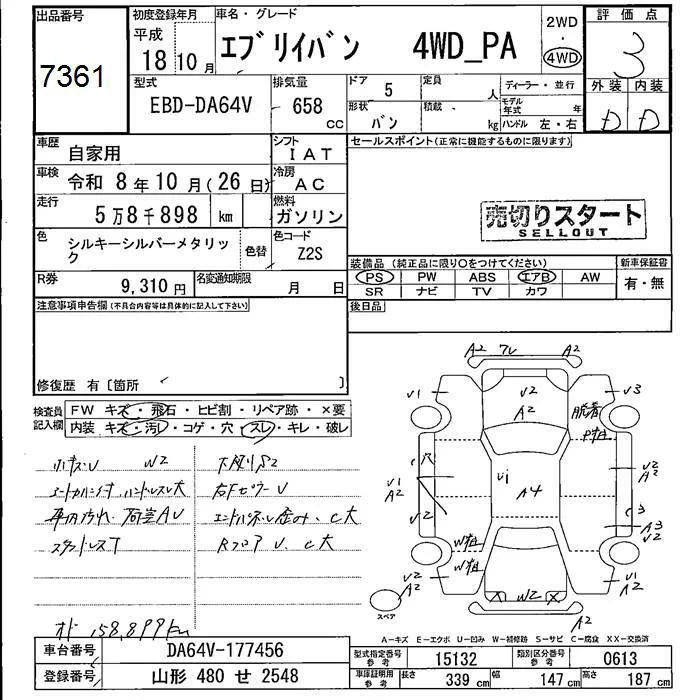 出品番号
7361
初度登録年月
平成
18年10月
車名・グレード
エブリイバン 4WD_PA
2WD
・
4WD
評価点
3
外装 内装
D D
型式
EBD-DA64V
排気量
658
CC
ドア 5
形状 バン
定員 人
積載 kg
ディーラー・並行
モデル年式 年
ハンドル 左・右
車歴 自家用
シフト IAT
車検 令和 8年10月(26日)
冷房 AC
走行 5万8千898 km
燃料 ガソリン
色 シルキーシルバーメタリック
色替
色コード Z2S
R券 9,310円
名変通知期限 月 日
セールスポイント(正常に機能するものに限ります)
売切りスタート
SELLOUT
装備品(純正品に限り○をつけてください)
新車保証書
PS PW ABS エアB AW
SR ナビ TV カワ
有・無
後日品
注意事項申告欄(不具合内容等は具体的に記入して下さい)
修復歴 有〔箇所 〕
検査員記入欄
FW キズ・飛石・ヒビ割・リペア跡・×要
内装 キズ・汚し・コゲ・穴・スレ・キレ・破し
小キズU W2
下廻りS2
右FピラーU
車内汚れ 荷室AU
スタッドレスT
RフロアU、C大
オド 158,899km
A2 フU A2
V1 V2 A2 V3
脱着
P粗
穴
V1 A2
V2
Ui A4
V2 A2
C3
A3 V2
W粗
W粗
V2 A2
W2
V1 A2
A2
スペア
A-キズ E-エクボ U-凹み W-補修跡 S-サビ C-腐食 XX-交換済
車台番号 DA64V-177456
登録番号 山形 480 せ 2548
型式指定番号 参考 15132
類別区分番号 参考 0613
車庫証明用 参考 長さ 339 cm 幅 147 cm 高さ 187 cm